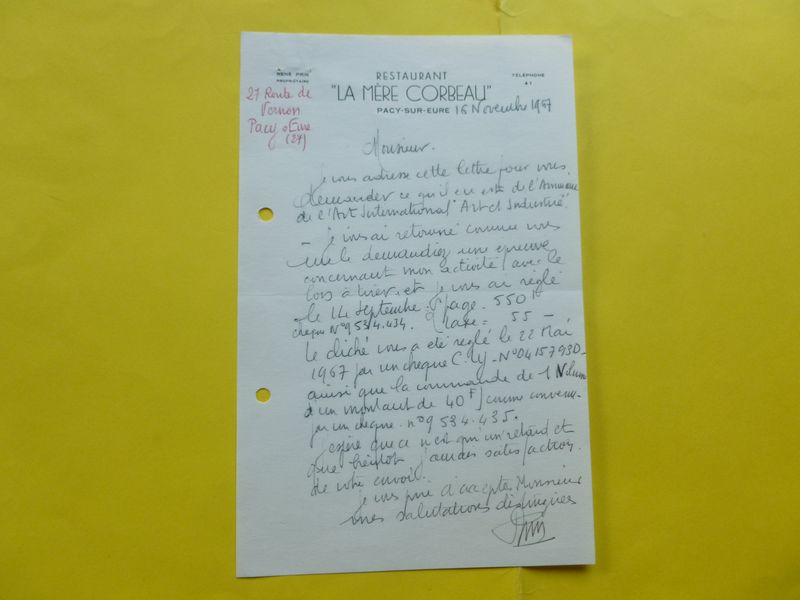 RENÉ PRIN
PROPRIÉTAIRE
RESTAURANT
"LA MÈRE CORBEAU"
PACY-SUR-EURE
TÉLÉPHONE
41
27 Route de
Vernon
Pacy s/Eure
(27)
16 Novembre 1967
Monsieur.
Je vous adresse cette lettre pour vous
demander ce qu'il en est de l'Annuaire
de l'Art International "Art et Industrie".
– Je vous ai retourné comme vous
me le demandiez une épreuve
concernant mon activité avec le
bon à tirer, et je vous ai réglé
le 14 Septembre. 1 page. 550 F
chèque N° 9534.434. taxe = 55 –
Le cliché vous a été réglé le 22 Mai
1967 par un chèque N° 0415793D –
ainsi que la commande de 1 Volume
d'un montant de 40F comme convenu –
par un chèque. n° 9534.435.
J'espère que ce n'est qu'un retard et
que bientôt j'aurai satisfaction
de votre envoi.
Je vous prie d'accepter Monsieur
mes salutations distinguées
Prin